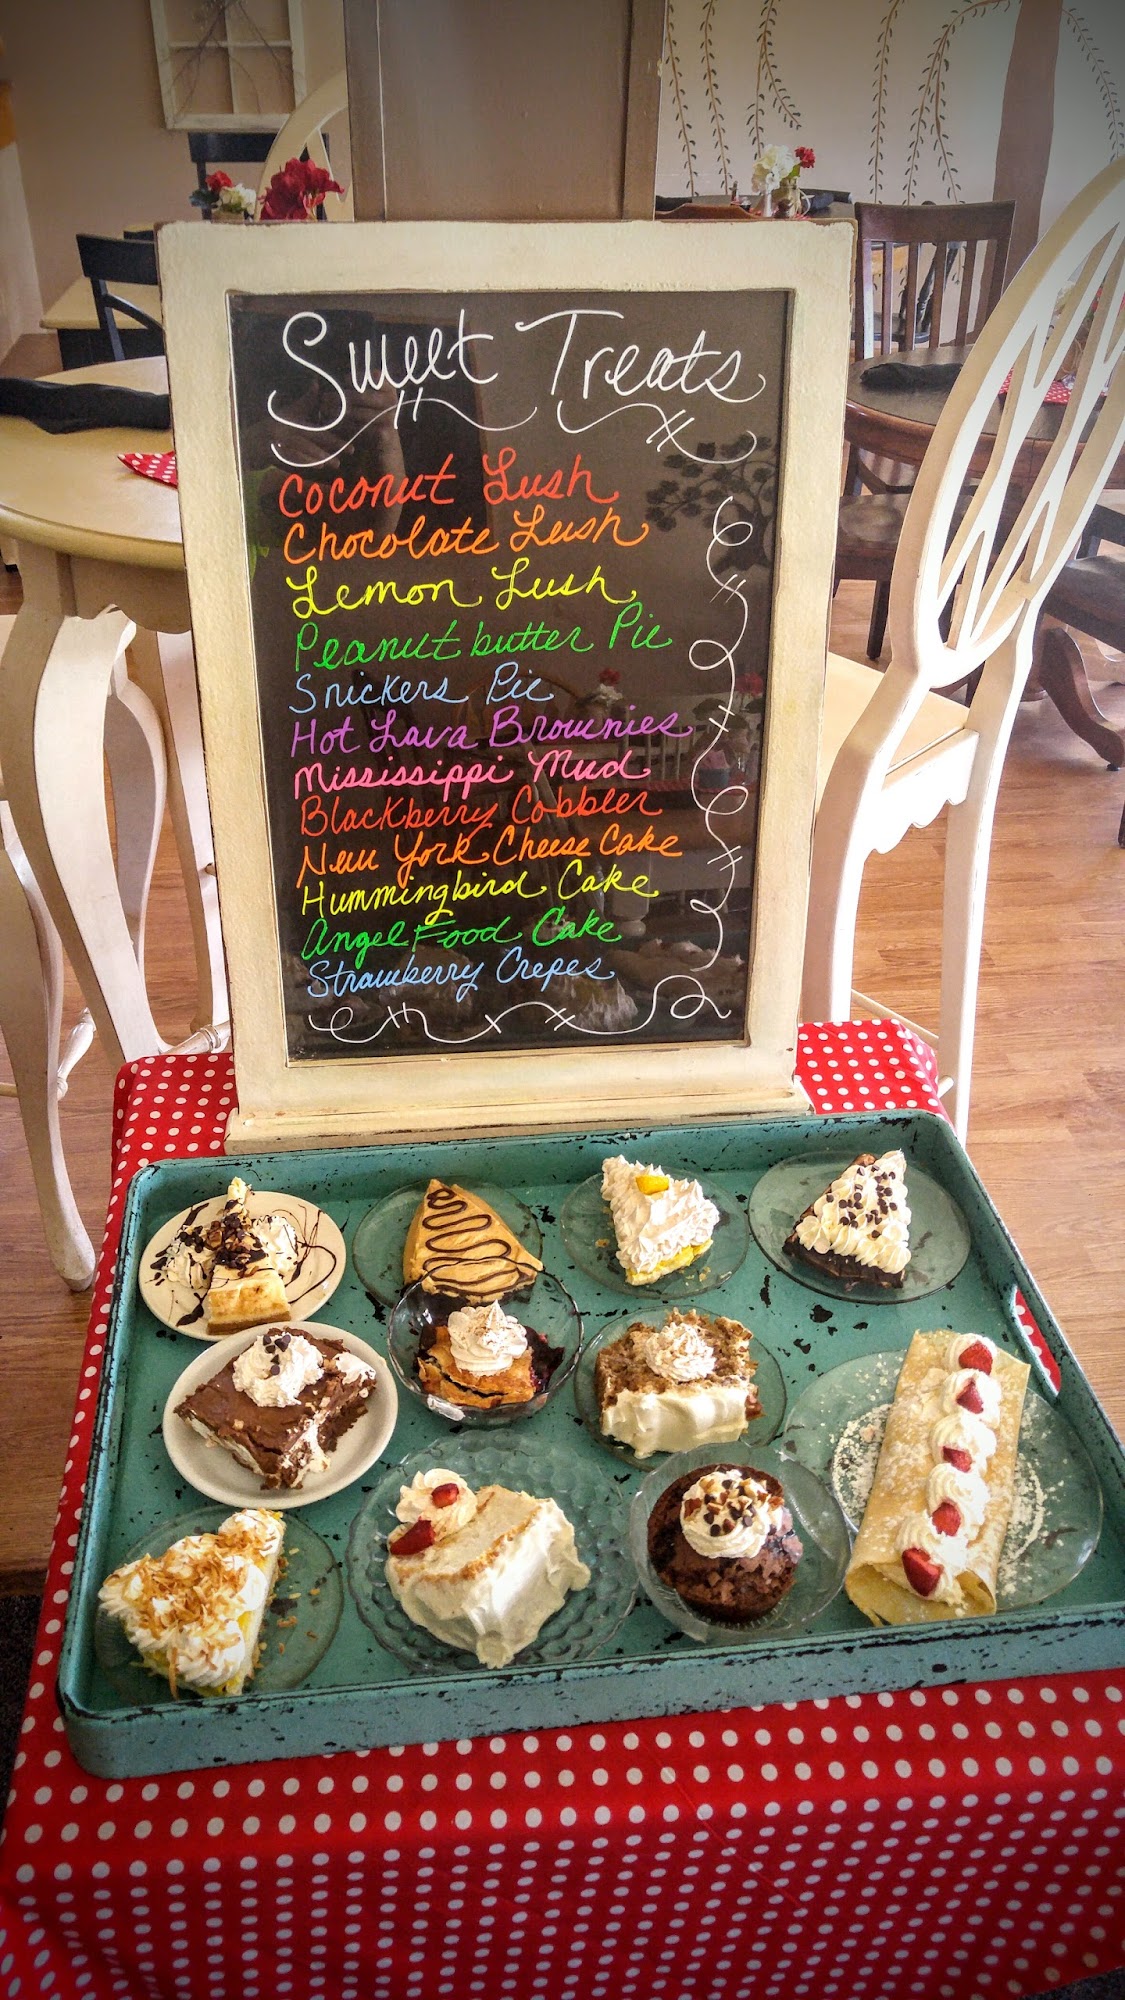 Sweet Treats
Coconut Lush
Chocolate Lush
Lemon Lush
Peanut butter Pie
Snickers Pie
Hot Lava Brownies
Mississippi Mud
Blackberry Cobbler
New York Cheese Cake
Hummingbird Cake
Angel Food Cake
Strawberry Crepes